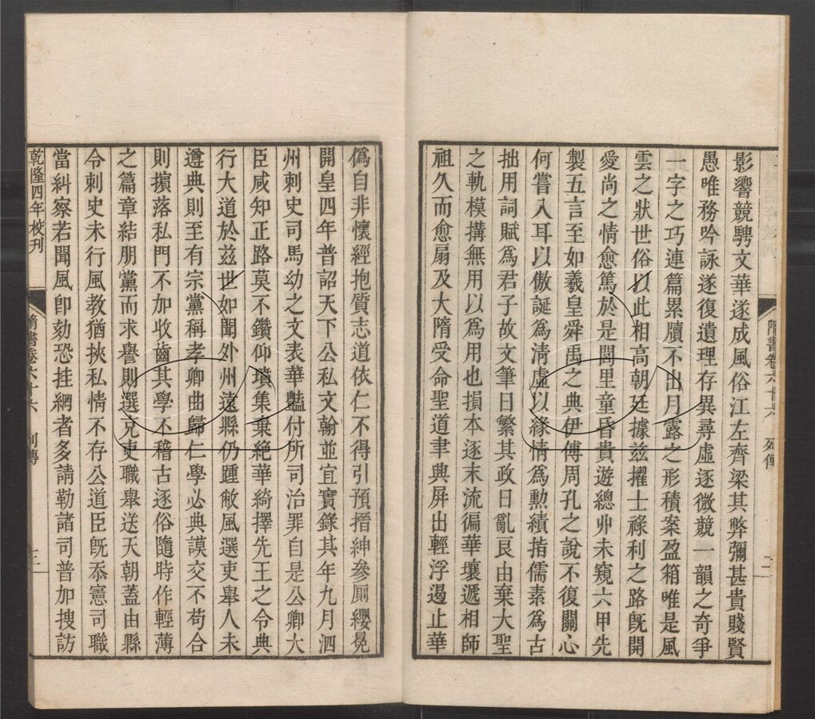 影響競騁文華遂成風俗江左齊梁其弊彌甚貴賤賢
愚唯務吟詠遂復遺理存異尋虛逐微競一韻之奇爭
一字之巧連篇累牘不出月露之形積案盈箱唯是風
雲之狀世俗以此相高朝廷據兹擢士祿利之路旣開
愛尚之情愈篤於是閭里童昏貴遊總丱未窺六甲先
製五言至如羲皇舜禹之典伊傅周孔之說不復關心
何嘗入耳以傲誕爲清虛以緣情爲勲績指儒素爲古
拙用詞賦爲君子故文筆日繁其政日亂良由棄大聖
之軌模搆無用以爲用也損本逐末流徧華壤遞相師
祖久而愈扇及大隋受命聖道聿興屏出輕浮遏止華
隋書卷六十六 列傳 二
僞自非懷經抱質志道依仁不得引預搢紳參厠纓冕
開皇四年普詔天下公私文翰並宜實錄其年九月泗
州刺史司馬幼之文表華豔付所司治罪自是公卿大
臣咸知正路莫不鑽仰墳集棄絶華綺擇先王之令典
行大道於兹世如聞外州遠縣仍踵敝風選吏舉人未
遵典則至有宗黨稱孝鄉曲歸仁學必典謨交不苟合
則擯落私門不加收齒其學不稽古逐俗隨時作輕薄
之篇章結朋黨而求譽則選充吏職舉送天朝蓋由縣
令刺史未行風教猶挾私情不存公道臣旣忝憲司職
當糾察若聞風卽劾恐挂網者多請勒諸司普加搜訪
乾隆四年校刋
隋書卷六十六 列傳